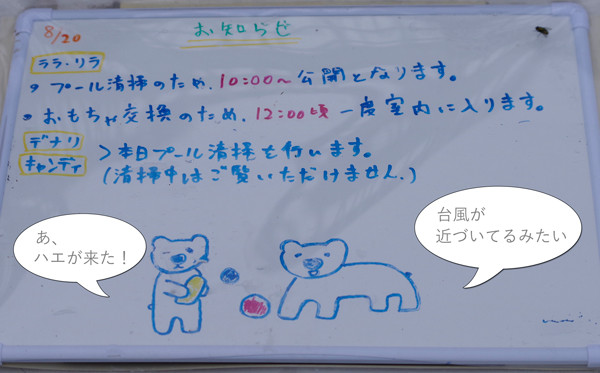 8/20
お知らせ
ララ・リラ
・プール清掃のため、10:00〜公開となります。
・おもちゃ交換のため、12:00頃一度室内に入ります。
デナリ
キャンディ
>本日プール清掃を行います。
(清掃中はご覧いただけません。)
あ、
ハエが来た!
台風が
近づいてるみたい